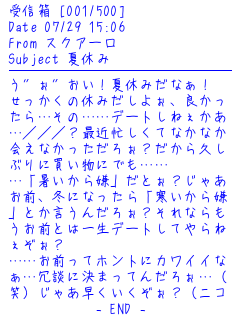 受信箱 [001/500]
Date 07/29 15:06
From スクアーロ
Subject 夏休み
う゛ぉ゛おい！夏休みだなぁ！
せっかくの休みだしよぉ、良かっ
たら…その……デートしねぇかぁ
…／／／？最近忙しくてなかなか
会えなかっただろぉ？だから久し
ぶりに買い物にでも……
…「暑いから嫌」だとぉ？じゃあ
お前、冬になったら「寒いから嫌
」とか言うんだろぉ？それならも
うお前とは一生デートしてやらね
ぇぞぉ？
……お前ってホントにカワイイな
ぁ…冗談に決まってんだろぉ…（
笑）じゃあ早くいくぞぉ？（ニコ
- END -